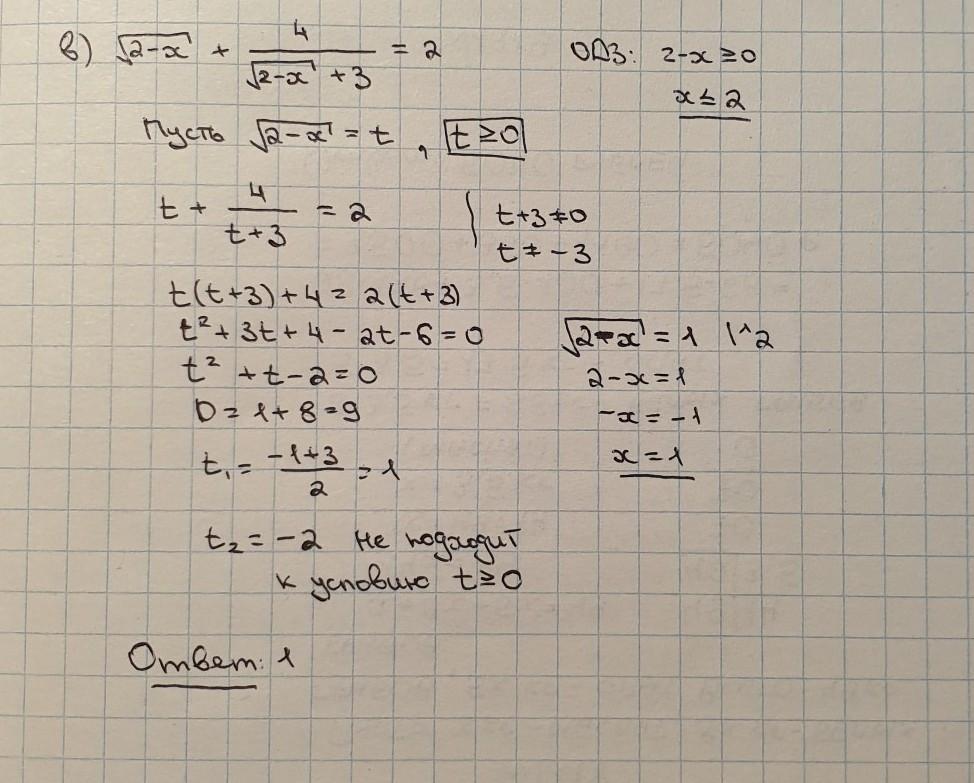 в) √(2-x) + 4/(√(2-x) + 3) = 2
ОДЗ: 2-x ≥ 0
x ≤ 2
Пусть √(2-x) = t, t ≥ 0
t + 4/(t+3) = 2
t+3 ≠ 0
t ≠ -3
t(t+3) + 4 = 2(t+3)
t² + 3t + 4 - 2t - 6 = 0
t² + t - 2 = 0
D = 1 + 8 = 9
t₁ = (-1+3)/2 = 1
t₂ = -2 не подходит
к условию t ≥ 0
√(2-x) = 1 |^2
2-x = 1
-x = -1
x = 1
Ответ: 1